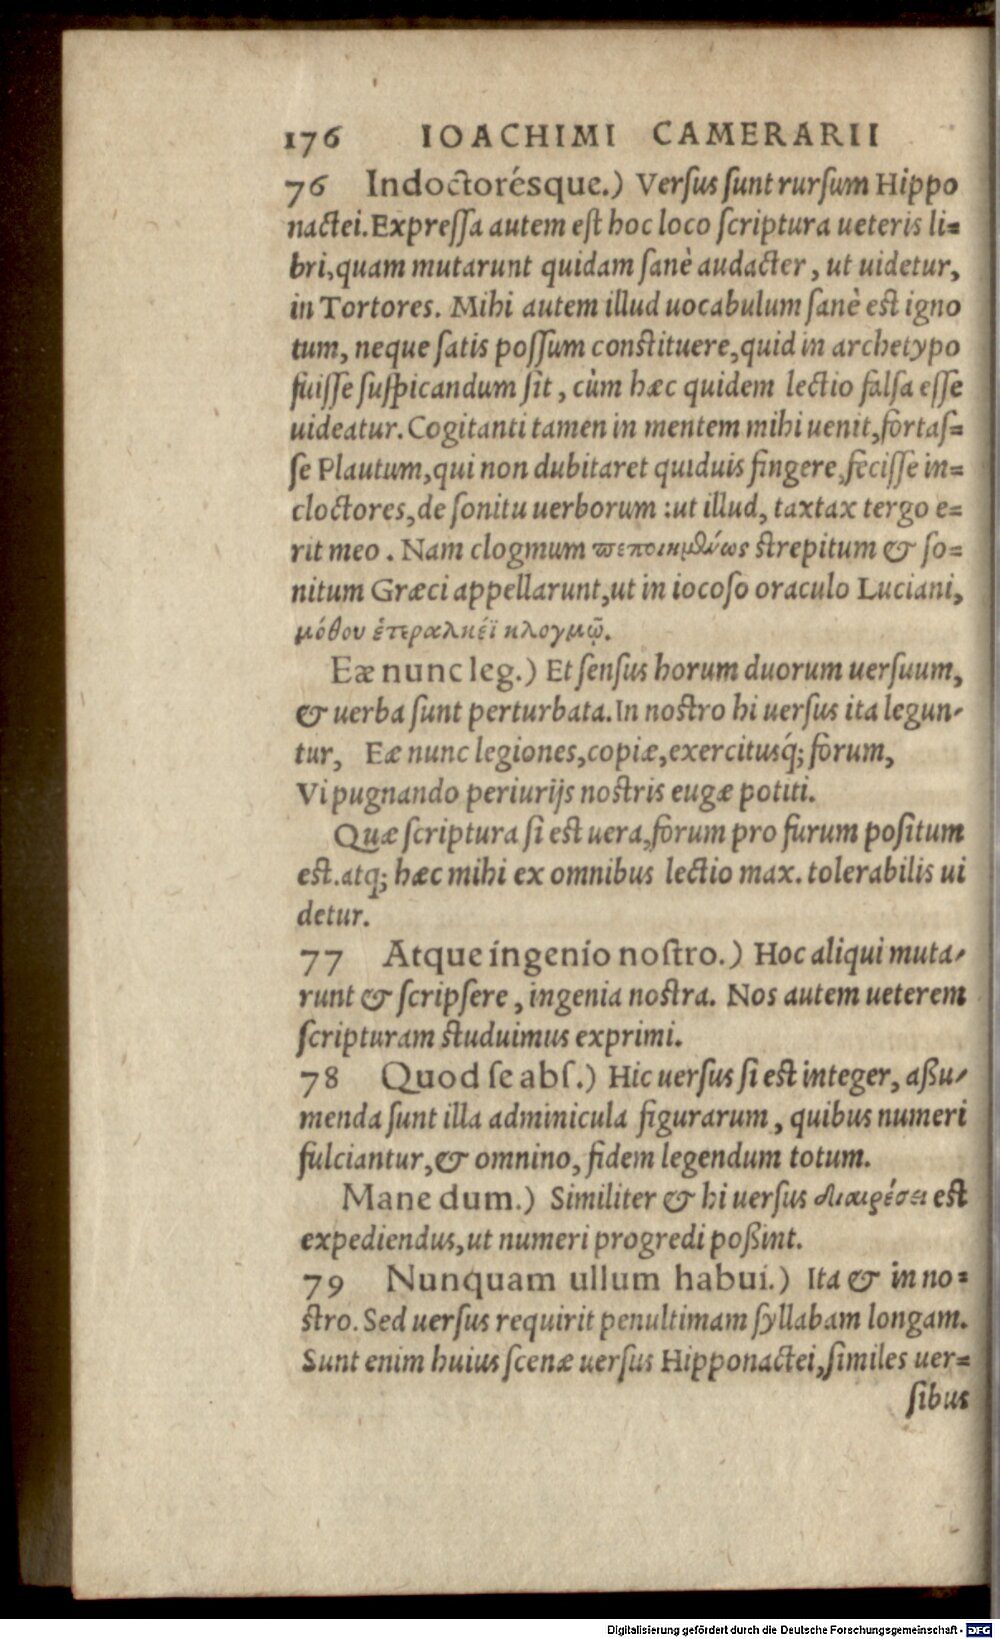 176 IOACHIMI CAMERARII
76 Indoctoresque.) Verſus ſunt rurſum Hippo
nactei. Expreſſa autem eſt hoc loco ſcriptura ueteris li=
bri, quam mutarunt quidam ſanè audacter, ut uidetur,
in Tortores. Mihi autem illud uocabulum ſanè eſt igno
tum, neque ſatis poſſum conſtituere, quid in archetypo
fuiſſe ſuſpicandum ſit, cùm hæc quidem lectio falſa eſſe
uideatur. Cogitanti tamen in mentem mihi uenit, fortaſ=
ſe Plautum, qui non dubitaret quiduis fingere, feciſſe in=
cloctores, de ſonitu uerborum: ut illud, taxtax tergo e=
rit meo. Nam clogmum πεποιημένως ſtrepitum & ſo=
nitum Græci appellarunt, ut in iocoſo oraculo Luciani,
μόθου ἑτεραλκέϊ κλογμῷ.
Eæ nunc leg.) Et ſenſus horum duorum uerſuum,
& uerba ſunt perturbata. In noſtro hi uerſus ita legun-
tur, Eæ nunc legiones, copiæ, exercitusq́; forum,
Vi pugnando periurijs noſtris eugæ potiti.
Quæ ſcriptura ſi eſt uera, forum pro furum poſitum
eſt. atq; hæc mihi ex omnibus lectio max. tolerabilis ui
detur.
77 Atque ingenio noſtro.) Hoc aliqui muta-
runt & ſcripſere, ingenia noſtra. Nos autem ueterem
ſcripturam ſtuduimus exprimi.
78 Quod ſe abſ.) Hic uerſus ſi eſt integer, aßu-
menda ſunt illa adminicula figurarum, quibus numeri
fulciantur, & omnino, fidem legendum totum.
Mane dum.) Similiter & hi uerſus διαιρέσει eſt
expediendus, ut numeri progredi poßint.
79 Nunquam ullum habui.) Ita & in no=
ſtro. Sed uerſus requirit penultimam ſyllabam longam.
Sunt enim huius ſcenæ uerſus Hipponactei, ſimiles uer=
ſibus
Digitalisierung gefördert durch die Deutsche Forschungsgemeinschaft - DFG